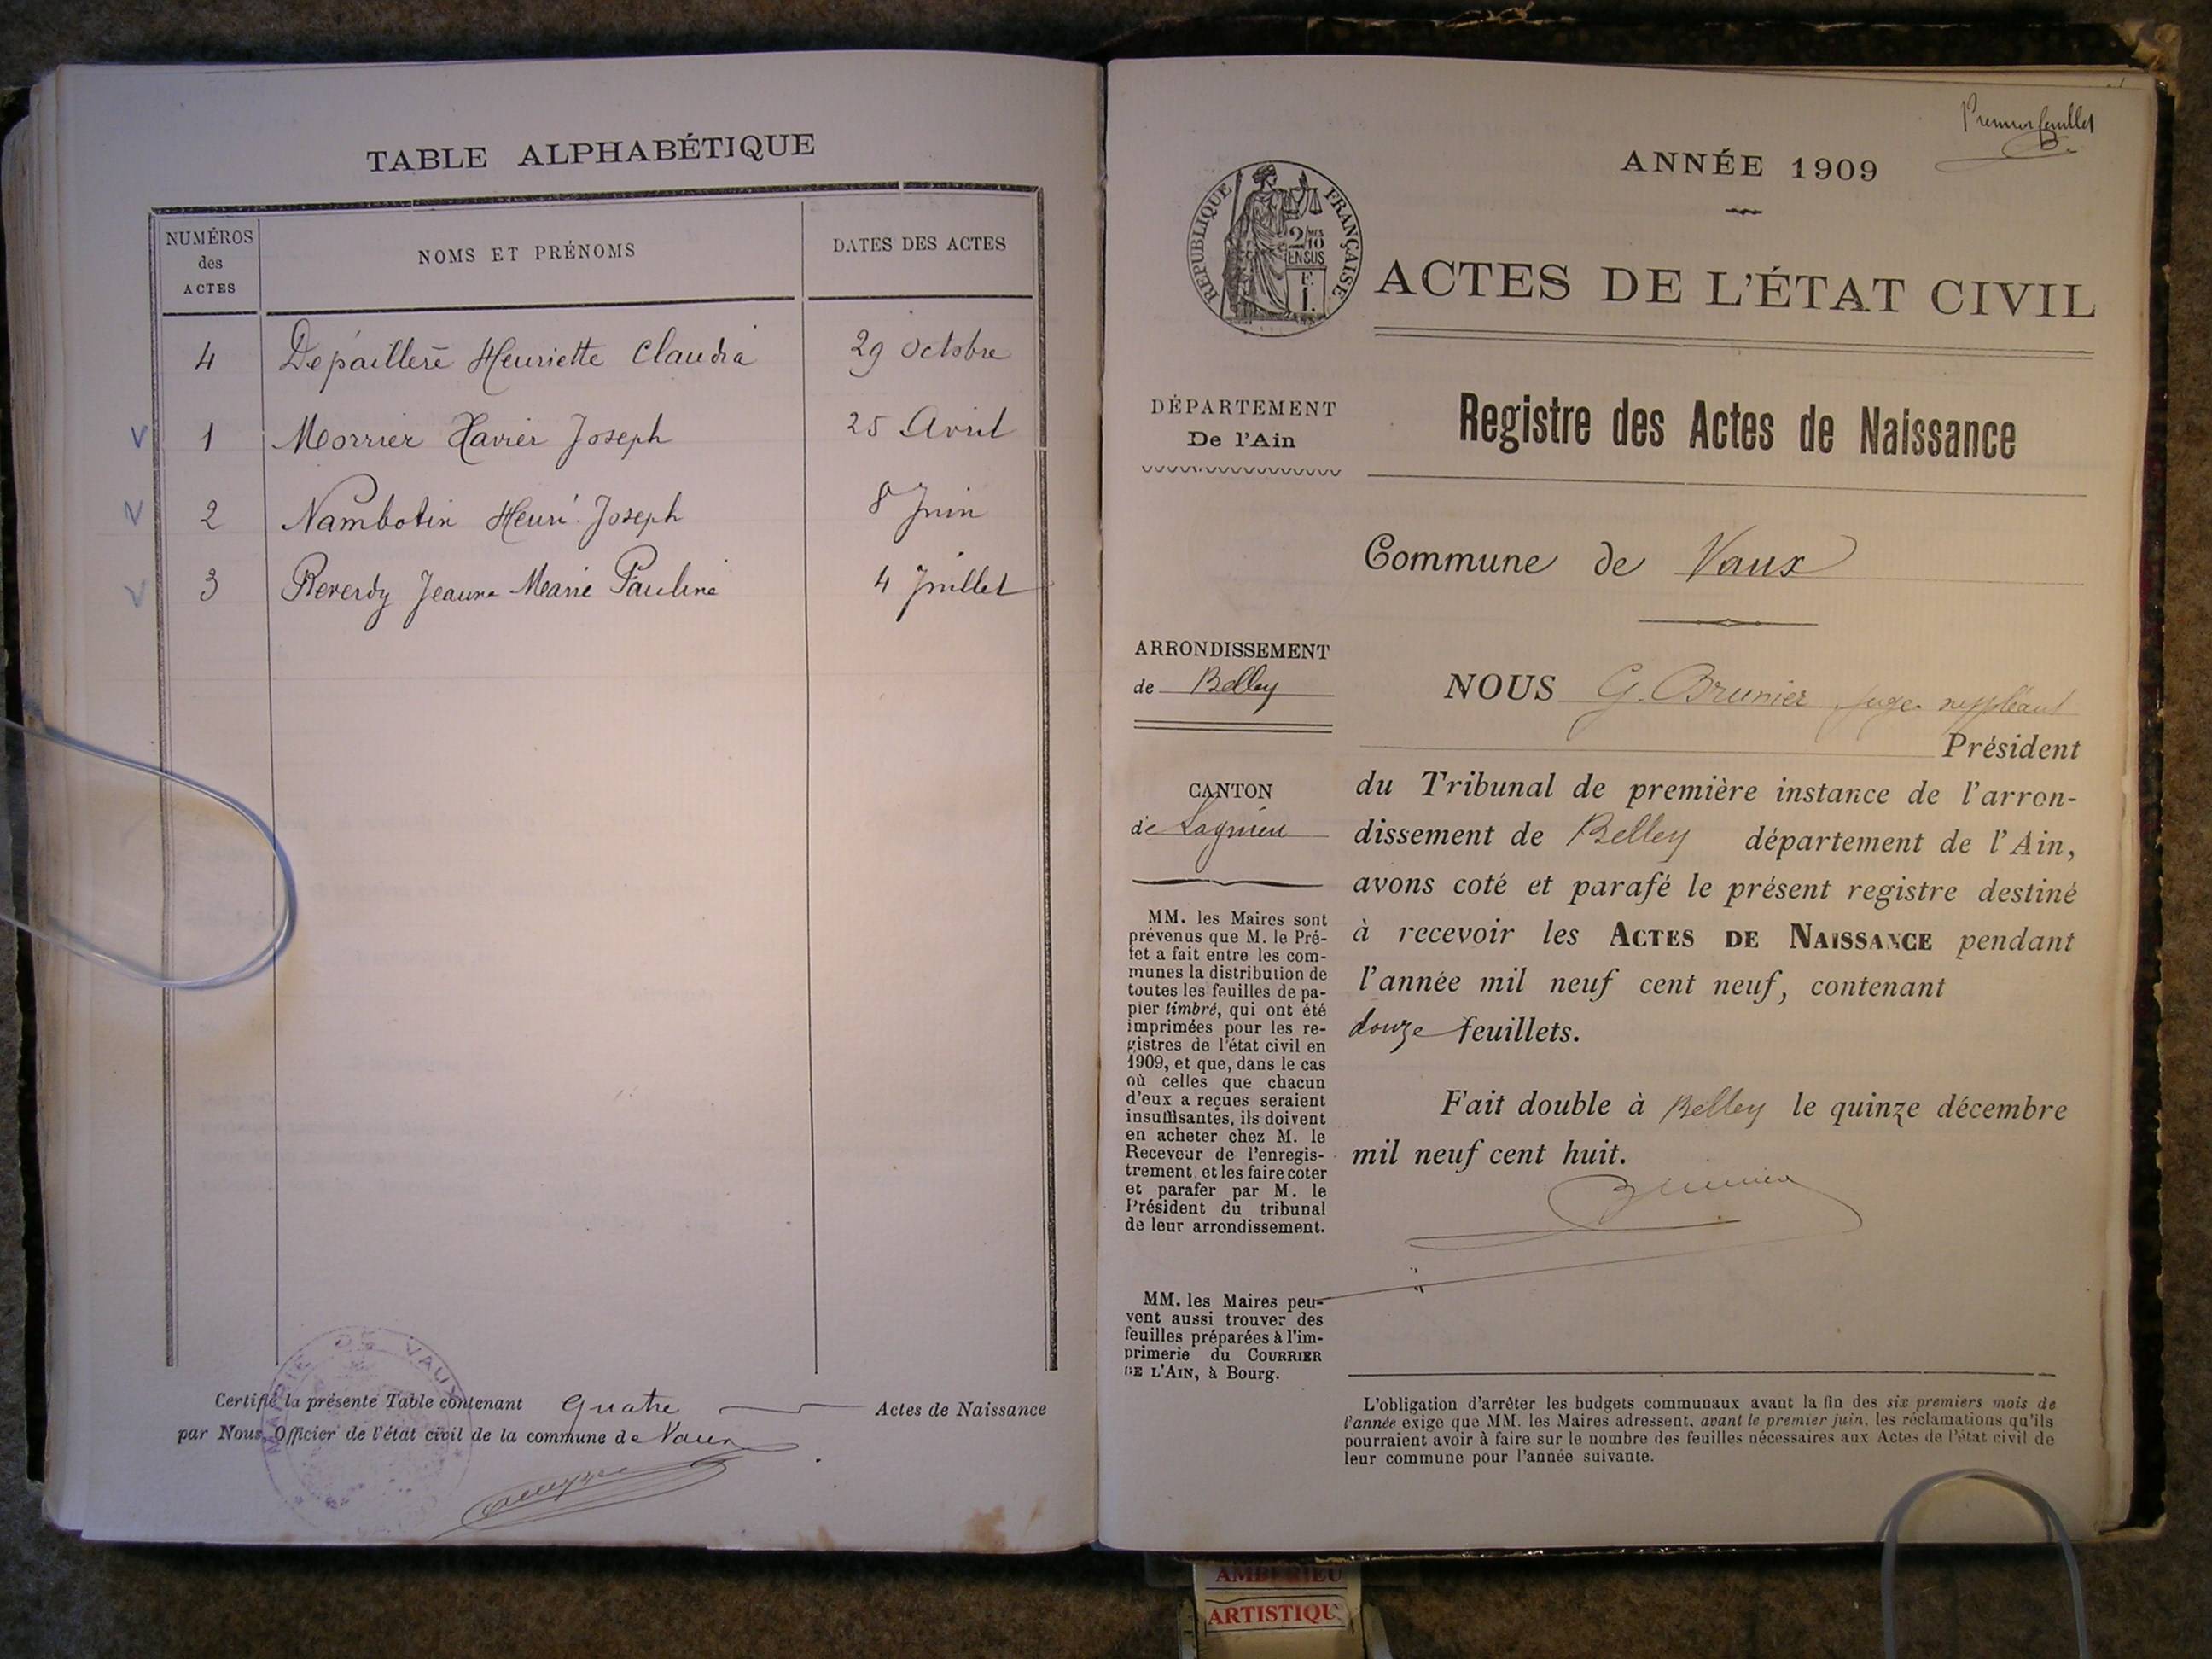 TABLE ALPHABÉTIQUE
NUMÉROS des ACTES
NOMS ET PRÉNOMS
DATES DES ACTES
4 Depaillere Henriette Claudia 29 Octobre
V 1 Morrier Xavier Joseph 25 Avril
V 2 Nambotin Henri Joseph 8 Juin
V 3 Reverdy Jeanne Marie Pauline 4 Juillet
MAIRIE DE VAUX
Certifié la présente Table contenant Quatre Actes de Naissance
par Nous, Officier de l'état civil de la commune de Vaux
Premier feuillet
ANNÉE 1909
RÉPUBLIQUE FRANÇAISE
2/10 EN SUS
1.
ACTES DE L'ÉTAT CIVIL
DÉPARTEMENT
De l'Ain
Registre des Actes de Naissance
Commune de Vaux
ARRONDISSEMENT
de Belley
CANTON
de Lagnieu
MM. les Maires sont
prévenus que M. le Pré-
fet a fait entre les com-
munes la distribution de
toutes les feuilles de pa-
pier timbré, qui ont été
imprimées pour les re-
gistres de l'état civil en
1909, et que, dans le cas
où celles que chacun
d'eux a reçues seraient
insuffisantes, ils doivent
en acheter chez M. le
Receveur de l'enregis-
trement et les faire coter
et parafer par M. le
Président du tribunal
de leur arrondissement.
MM. les Maires peu-
vent aussi trouver des
feuilles préparées à l'im-
primerie du COURRIER
DE L'AIN, à Bourg.
NOUS G. Brunier juge suppléant
Président
du Tribunal de première instance de l'arron-
dissement de Belley département de l'Ain,
avons coté et parafé le présent registre destiné
à recevoir les ACTES DE NAISSANCE pendant
l'année mil neuf cent neuf, contenant
douze feuillets.
Fait double à Belley le quinze décembre
mil neuf cent huit.
Brunier
L'obligation d'arrêter les budgets communaux avant la fin des six premiers mois de
l'année exige que MM. les Maires adressent, avant le premier juin, les réclamations qu'ils
pourraient avoir à faire sur le nombre des feuilles nécessaires aux Actes de l'état civil de
leur commune pour l'année suivante.
AMBERIEU
ARTISTIQU